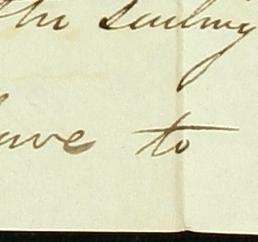 the sailing
have to